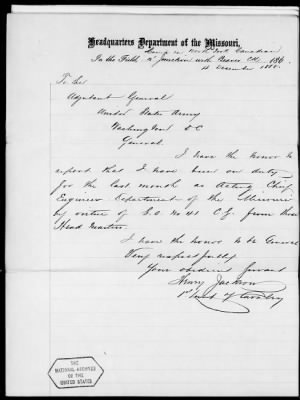 Headquarters Department of the Missouri,
Camp on North Fork Canadian
In the Field at junction with Beaver Crk 186
4 December 1868.
To the
Adjutant General
United States Army
Washington D C
General
I have the honor to
report that I have been on duty
for the last month as Acting Chief
Engineer Department of the Missouri
by virtue of S.O. No 41 C.S. from these
Head Quarters.
I have the honor to be General
Very respectfully
Your obedient Servant
Henry Jackson
1st Lieut 7 Cavalry
THE
NATIONAL ARCHIVES
OF THE
UNITED STATES